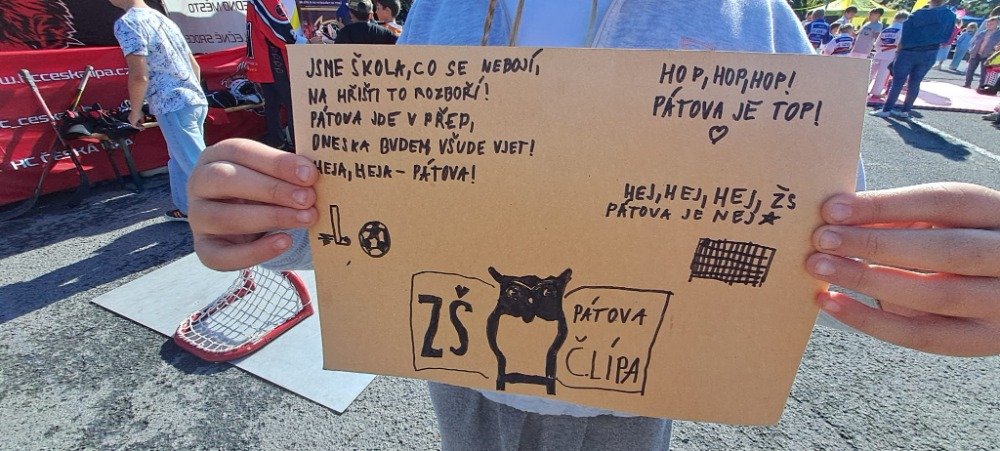 JSME ŠKOLA, CO SE NEBOJÍ,
NA HŘIŠTI TO ROZBOŘÍ!
PÁTOVA JDE V PŘED,
DNESKA BUDEM VŠUDE VJET!
HEJA, HEJA - PÁTOVA!
HOP, HOP, HOP!
PÁTOVA JE TOP!
HEJ, HEJ, HEJ, ZŠ
PÁTOVA JE NEJ
ZŠ
PÁTOVA
ČLÍPA
www.hcceskalipa.cz
HC ČESKÁ LÍPA